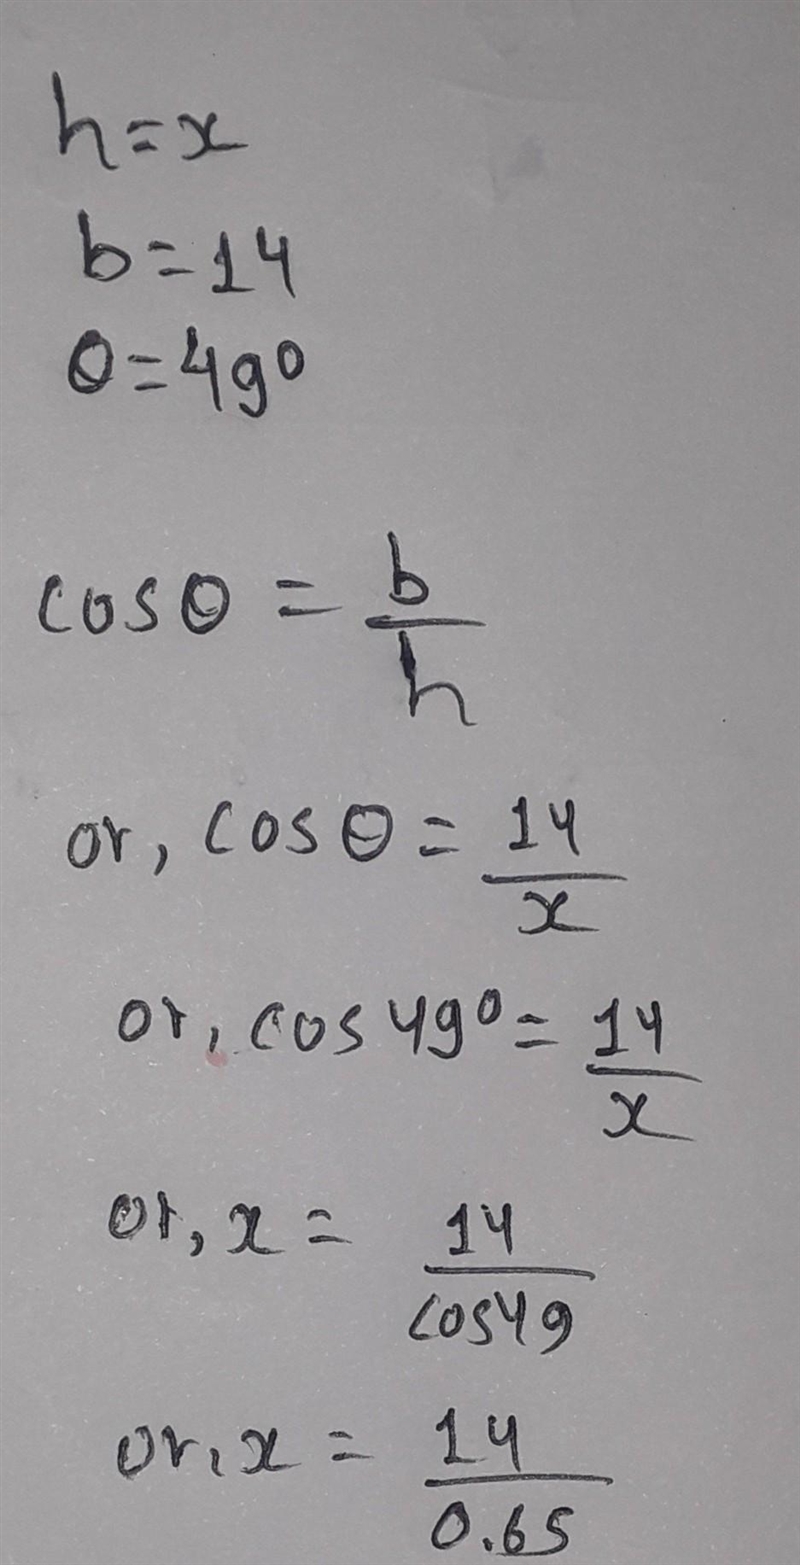 h=x
b=14
θ=49°
cosθ = b/h
or, cosθ = 14/x
or, cos49° = 14/x
or, x = 14/cos49
or, x = 14/0.65